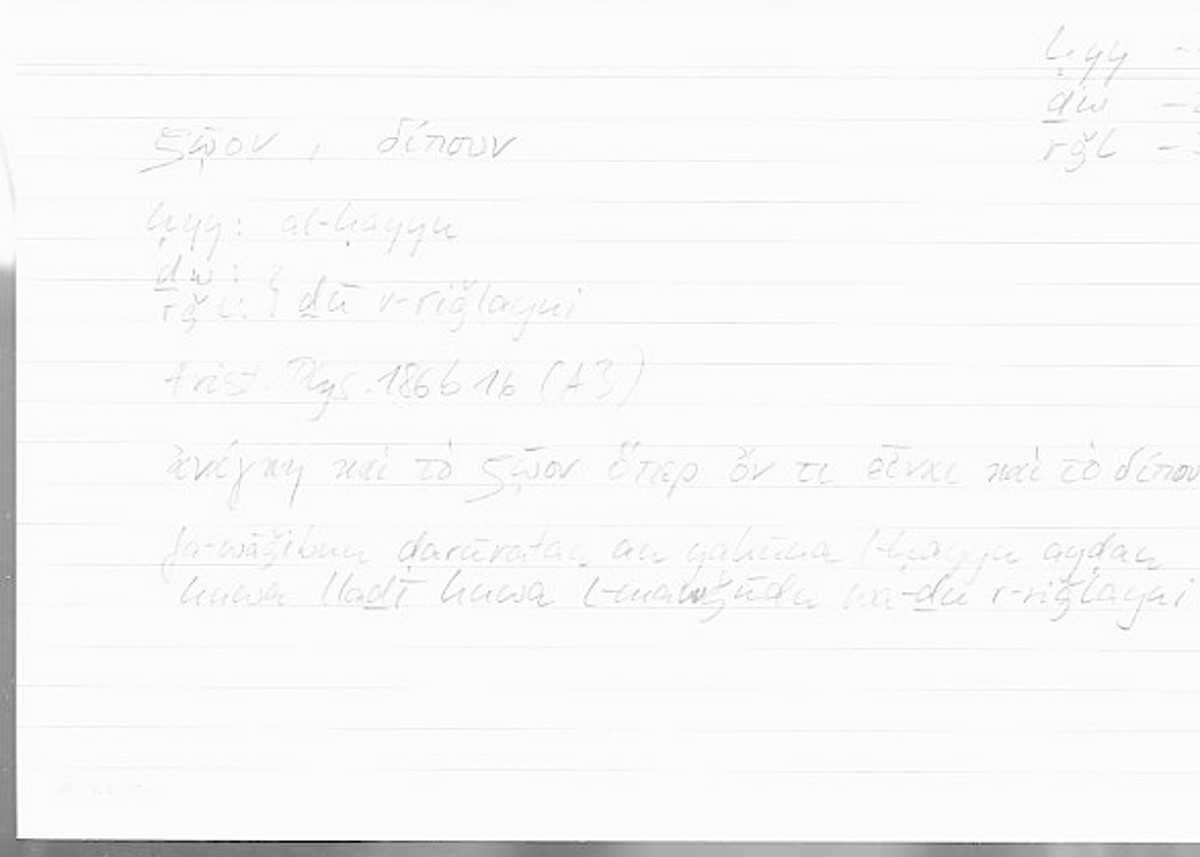 ḥyy -
ḏw -
rǧl -
ζῷον , δίπουν
ḥyy: al-ḥayyu
ḏw:
rǧl: } ḏū r-riǧlayni
Arist. Phys. 186b16 (A3)
ἀνάγκη καὶ τὸ ζῷον ὅπερ ὄν τι εἶναι καὶ τὸ δίπουν
fa-wāǧibun ḍarūratan an yakūna l-ḥayyu ayḍan
huwa lladī huwa l-mawǧūdu wa-ḏū r-riǧlayni